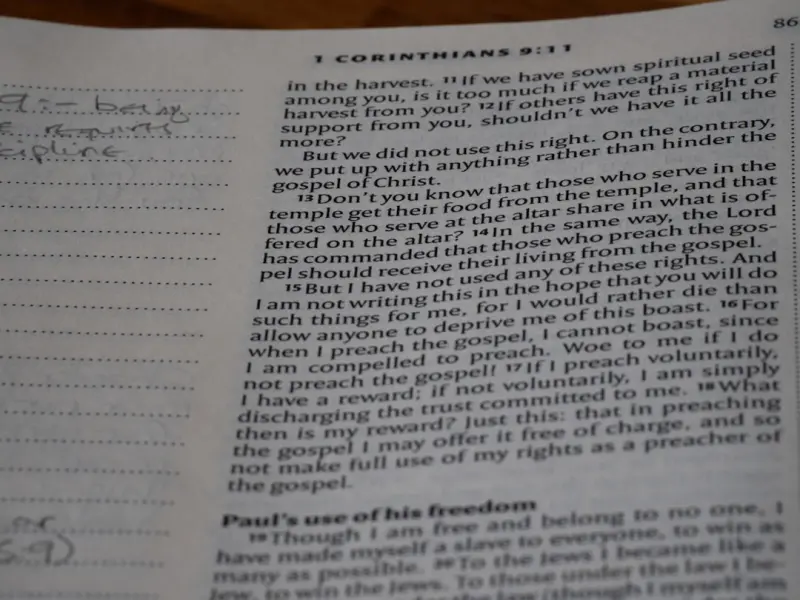 86
1 CORINTHIANS 9:11
9:- being
requires
in the harvest. 11 If we have sown spiritual seed
among you, is it too much if we reap a material
harvest from you? 12 If others have this right of
support from you, shouldn't we have it all the
more?
But we did not use this right. On the contrary,
we put up with anything rather than hinder the
gospel of Christ.
13 Don't you know that those who serve in the
temple get their food from the temple, and that
those who serve at the altar share in what is of-
fered on the altar? 14 In the same way, the Lord
has commanded that those who preach the gos-
pel should receive their living from the gospel.
15 But I have not used any of these rights. And
I am not writing this in the hope that you will do
such things for me, for I would rather die than
allow anyone to deprive me of this boast. 16 For
when I preach the gospel, I cannot boast, since
I am compelled to preach. Woe to me if I do
not preach the gospel! 17 If I preach voluntarily,
I have a reward; if not voluntarily, I am simply
discharging the trust committed to me. 18 What
then is my reward? Just this: that in preaching
the gospel I may offer it free of charge, and so
not make full use of my rights as a preacher of
the gospel.
Paul's use of his freedom
19 Though I am free and belong to no one, I
have made myself a slave to everyone, to win as
many as possible. 20 To the Jews I became like a
Jew, to win the Jews. To those under the law I be-
(though I myself am